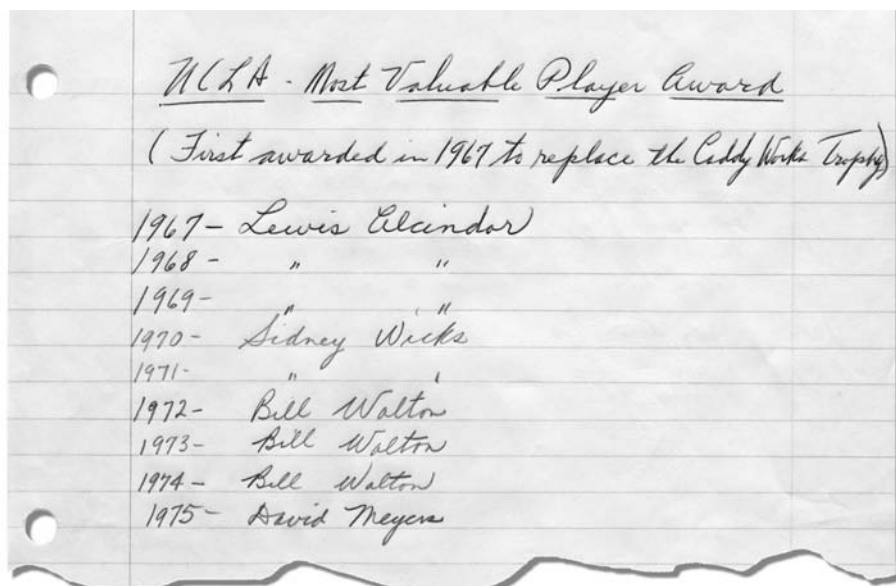 UCLA - Most Valuable Player Award
(First awarded in 1967 to replace the Caddy Works Trophy)
1967- Lewis Alcindor
1968- " "
1969- " "
1970- Sidney Wicks
1971- " "
1972- Bill Walton
1973- Bill Walton
1974- Bill Walton
1975- David Meyers